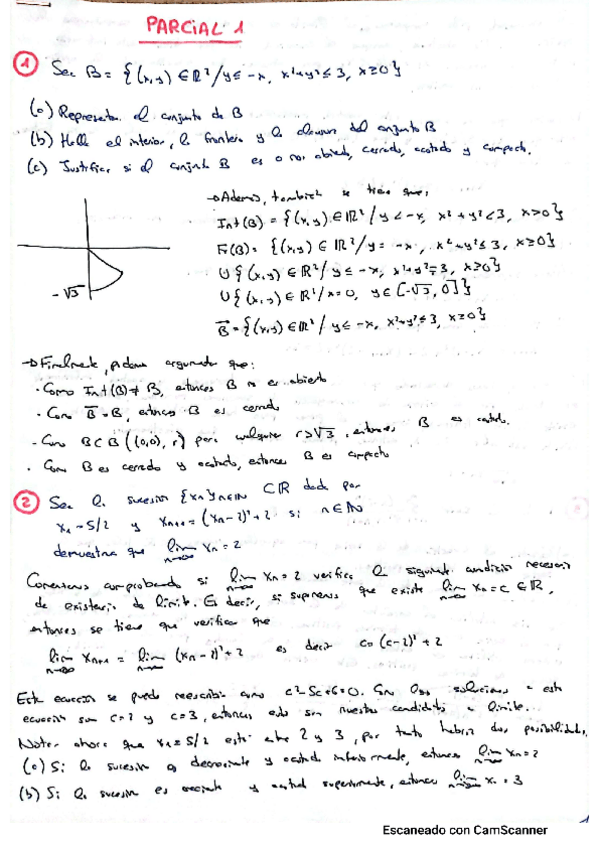 PARCIAL 1
① Sea B = {(x,y) ∈ ℝ² / y ≤ -x, x²+y² ≤ 3, x ≥ 0}
(a) Representar el conjunto de B
(b) Halle el interior, la frontera y la clausura del conjunto B
(c) Justificar si el conjunto B es o no: abierto, cerrado, acotado y compacto.
→ Además, también se tiene que:
Int(B) = {(x,y) ∈ ℝ² / y < -x, x² + y² < 3, x > 0}
Fr(B) = {(x,y) ∈ ℝ² / y = -x, x²+y² ≤ 3, x ≥ 0}
∪ {(x,y) ∈ ℝ² / y ≤ -x, x²+y² = 3, x ≥ 0}
∪ {(x,y) ∈ ℝ² / x = 0, y ∈ [-√3, 0]}
B̅ = {(x,y) ∈ ℝ² / y ≤ -x, x²+y² ≤ 3, x ≥ 0}
-√3
→ Finalmente, podemos argumentar que:
· Como Int(B) ≠ B, entonces B no es abierto
· Como B̅ = B, entonces B es cerrado
· Como B ⊂ B((0,0), r) para cualquier r > √3, entonces B es acotado.
· Como B es cerrado y acotado, entonces B es compacto
② Sea la sucesión {xn}n∈ℕ ⊂ ℝ dada por
x₁ = 5/2 y xn+1 = (xn-2)²+2 si n ∈ ℕ
demuestra que lim n→∞ xn = 2
Comenzamos comprobando si lim n→∞ xn = 2 verifica la siguiente condición necesaria
de existencia de límite. Es decir, si suponemos que existe lim n→∞ xn = c ∈ ℝ,
entonces se tiene que verificar que
lim n→∞ xn+1 = lim n→∞ (xn-2)²+2 es decir c = (c-2)²+2
Esta ecuación se puede reescribir como c²-5c+6=0. Como las soluciones a esta
ecuación son c=2 y c=3, entonces estos son nuestros candidatos a límite.
Notar ahora que x₁ = 5/2 está entre 2 y 3, por tanto habrá dos posibilidades,
(a) Si la sucesión es decreciente y acotada inferiormente, entonces lim n→∞ xn = 2
(b) Si la sucesión es creciente y acotada superiormente, entonces lim n→∞ xn = 3
1
Escaneado con CamScanner